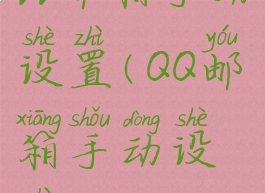 shè zhì yóu
设置(QQ邮
xiāng shǒu dòng shè
箱手动设